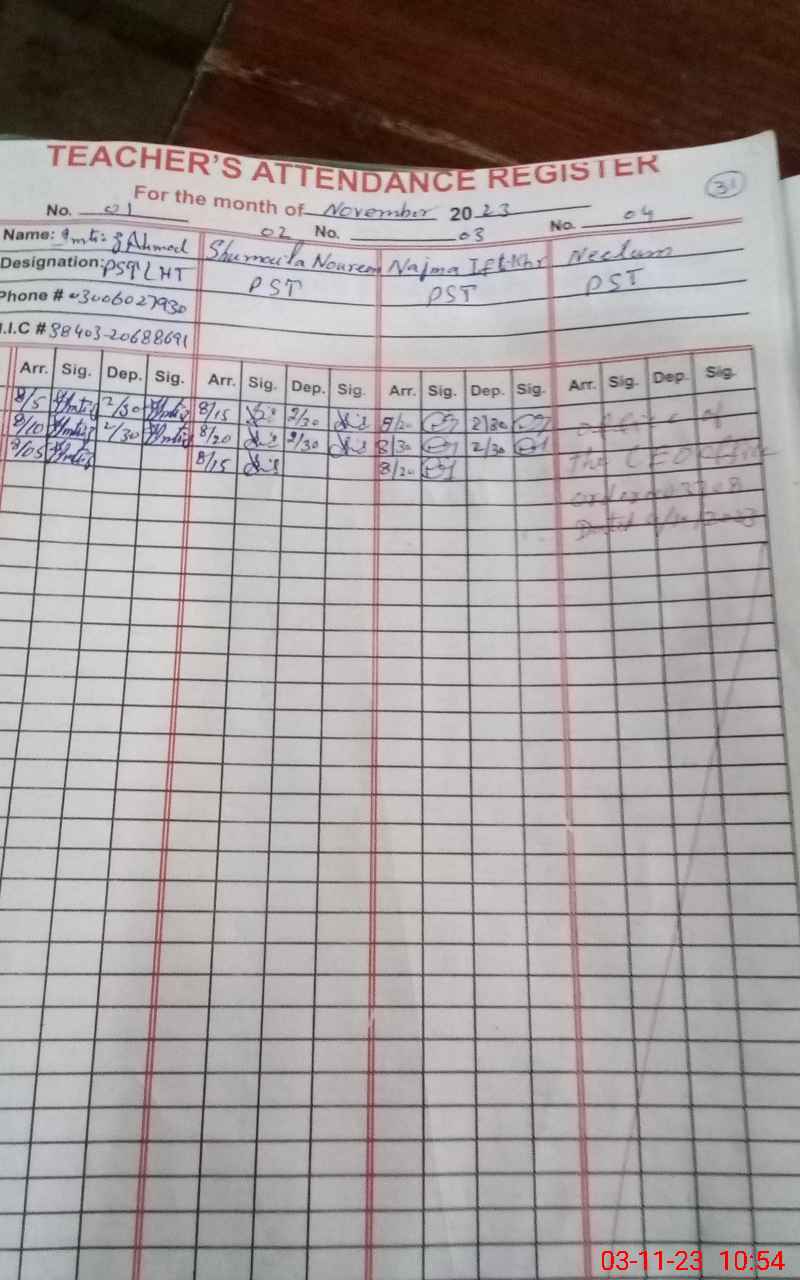 TEACHER'S ATTENDANCE REGISTER
31
For the month of November 2023
No. 01 02 No. 03 No. 04
Name: Imtiaz Ahmad Shumaila Noureen Najma Iftikhr Neelum
Designation: PST LHT PST PST PST
Phone # 03006027930
I.I.C # 38403-20688691
Arr. Sig. Dep. Sig. Arr. Sig. Dep. Sig. Arr. Sig. Dep. Sig. Arr. Sig. Dep. Sig.
8/5 Imtiaz 2/30 Imtiaz 8/15 2/30 8/20 2/30
8/10 Imtiaz 2/30 Imtiaz 8/20 2/30 8/30 2/30 office of
8/05 Imtiaz 8/15 8/20 The CEO office
order no
Dated
03-11-23 10:54